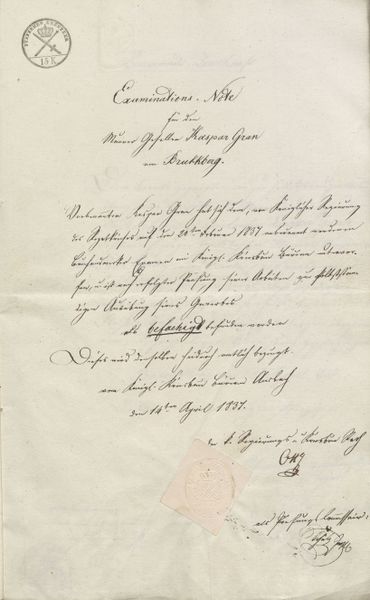 15 K
Examinations-Note
für den
Maurer Gesellen Kaspar Gran
von Bruckberg.
Vorbenannter Kaspar Gran hat sich dem, von Königlicher Regierung
des Rezatkreises auf den 20ten Februar 1837 anberaumten
Examen im Königl. Kreisbau Büreau unterwor-
fen, u. ist nach erfolgter Prüfung seiner Arbeiten zur selbststän-
digen Ausübung seines Gewerbes
als befaehigt befunden worden
Dieses wird demselben hiedurch amtlich bezeugt.
vom Königl. Kreisbau Büreau Ansbach
den 14ten April 1837.
der k. Regierungs u. Kreisbau Rath
als Prüfungs Commissair: